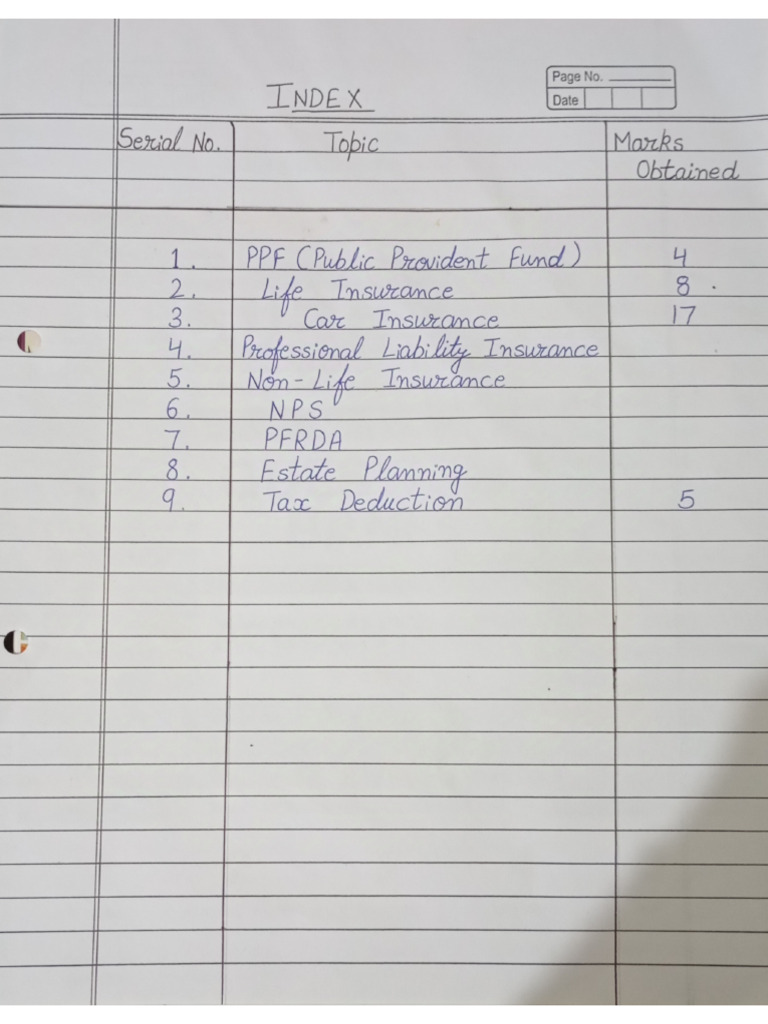 Page No.
INDEX
Date
Serial No. Topic Marks
Obtained
1. PPF (Public Provident Fund) 4
2. Life Insurance 8
3. Car Insurance 17
4. Professional Liability Insurance
5. Non-Life Insurance
6. NPS
7. PFRDA
8. Estate Planning
9. Tax Deduction 5